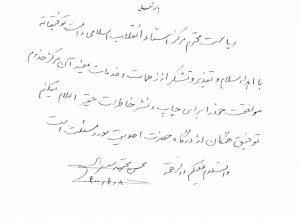 باسمه تعالی
ریاست محترم مرکز اسناد انقلاب اسلامی دامت توفیقاته
با اهداء سلام و تقدیر و تشکر از زحمات و خدمات مفید آن مرکز محترم
موافقت خود را برای چاپ و نشر خاطرات خود اعلام میکنم
توفیق همگان از درگاه حضرت احدیت مورد مسئلت است
والسلام علیکم و رحمة
محسن مجتهد